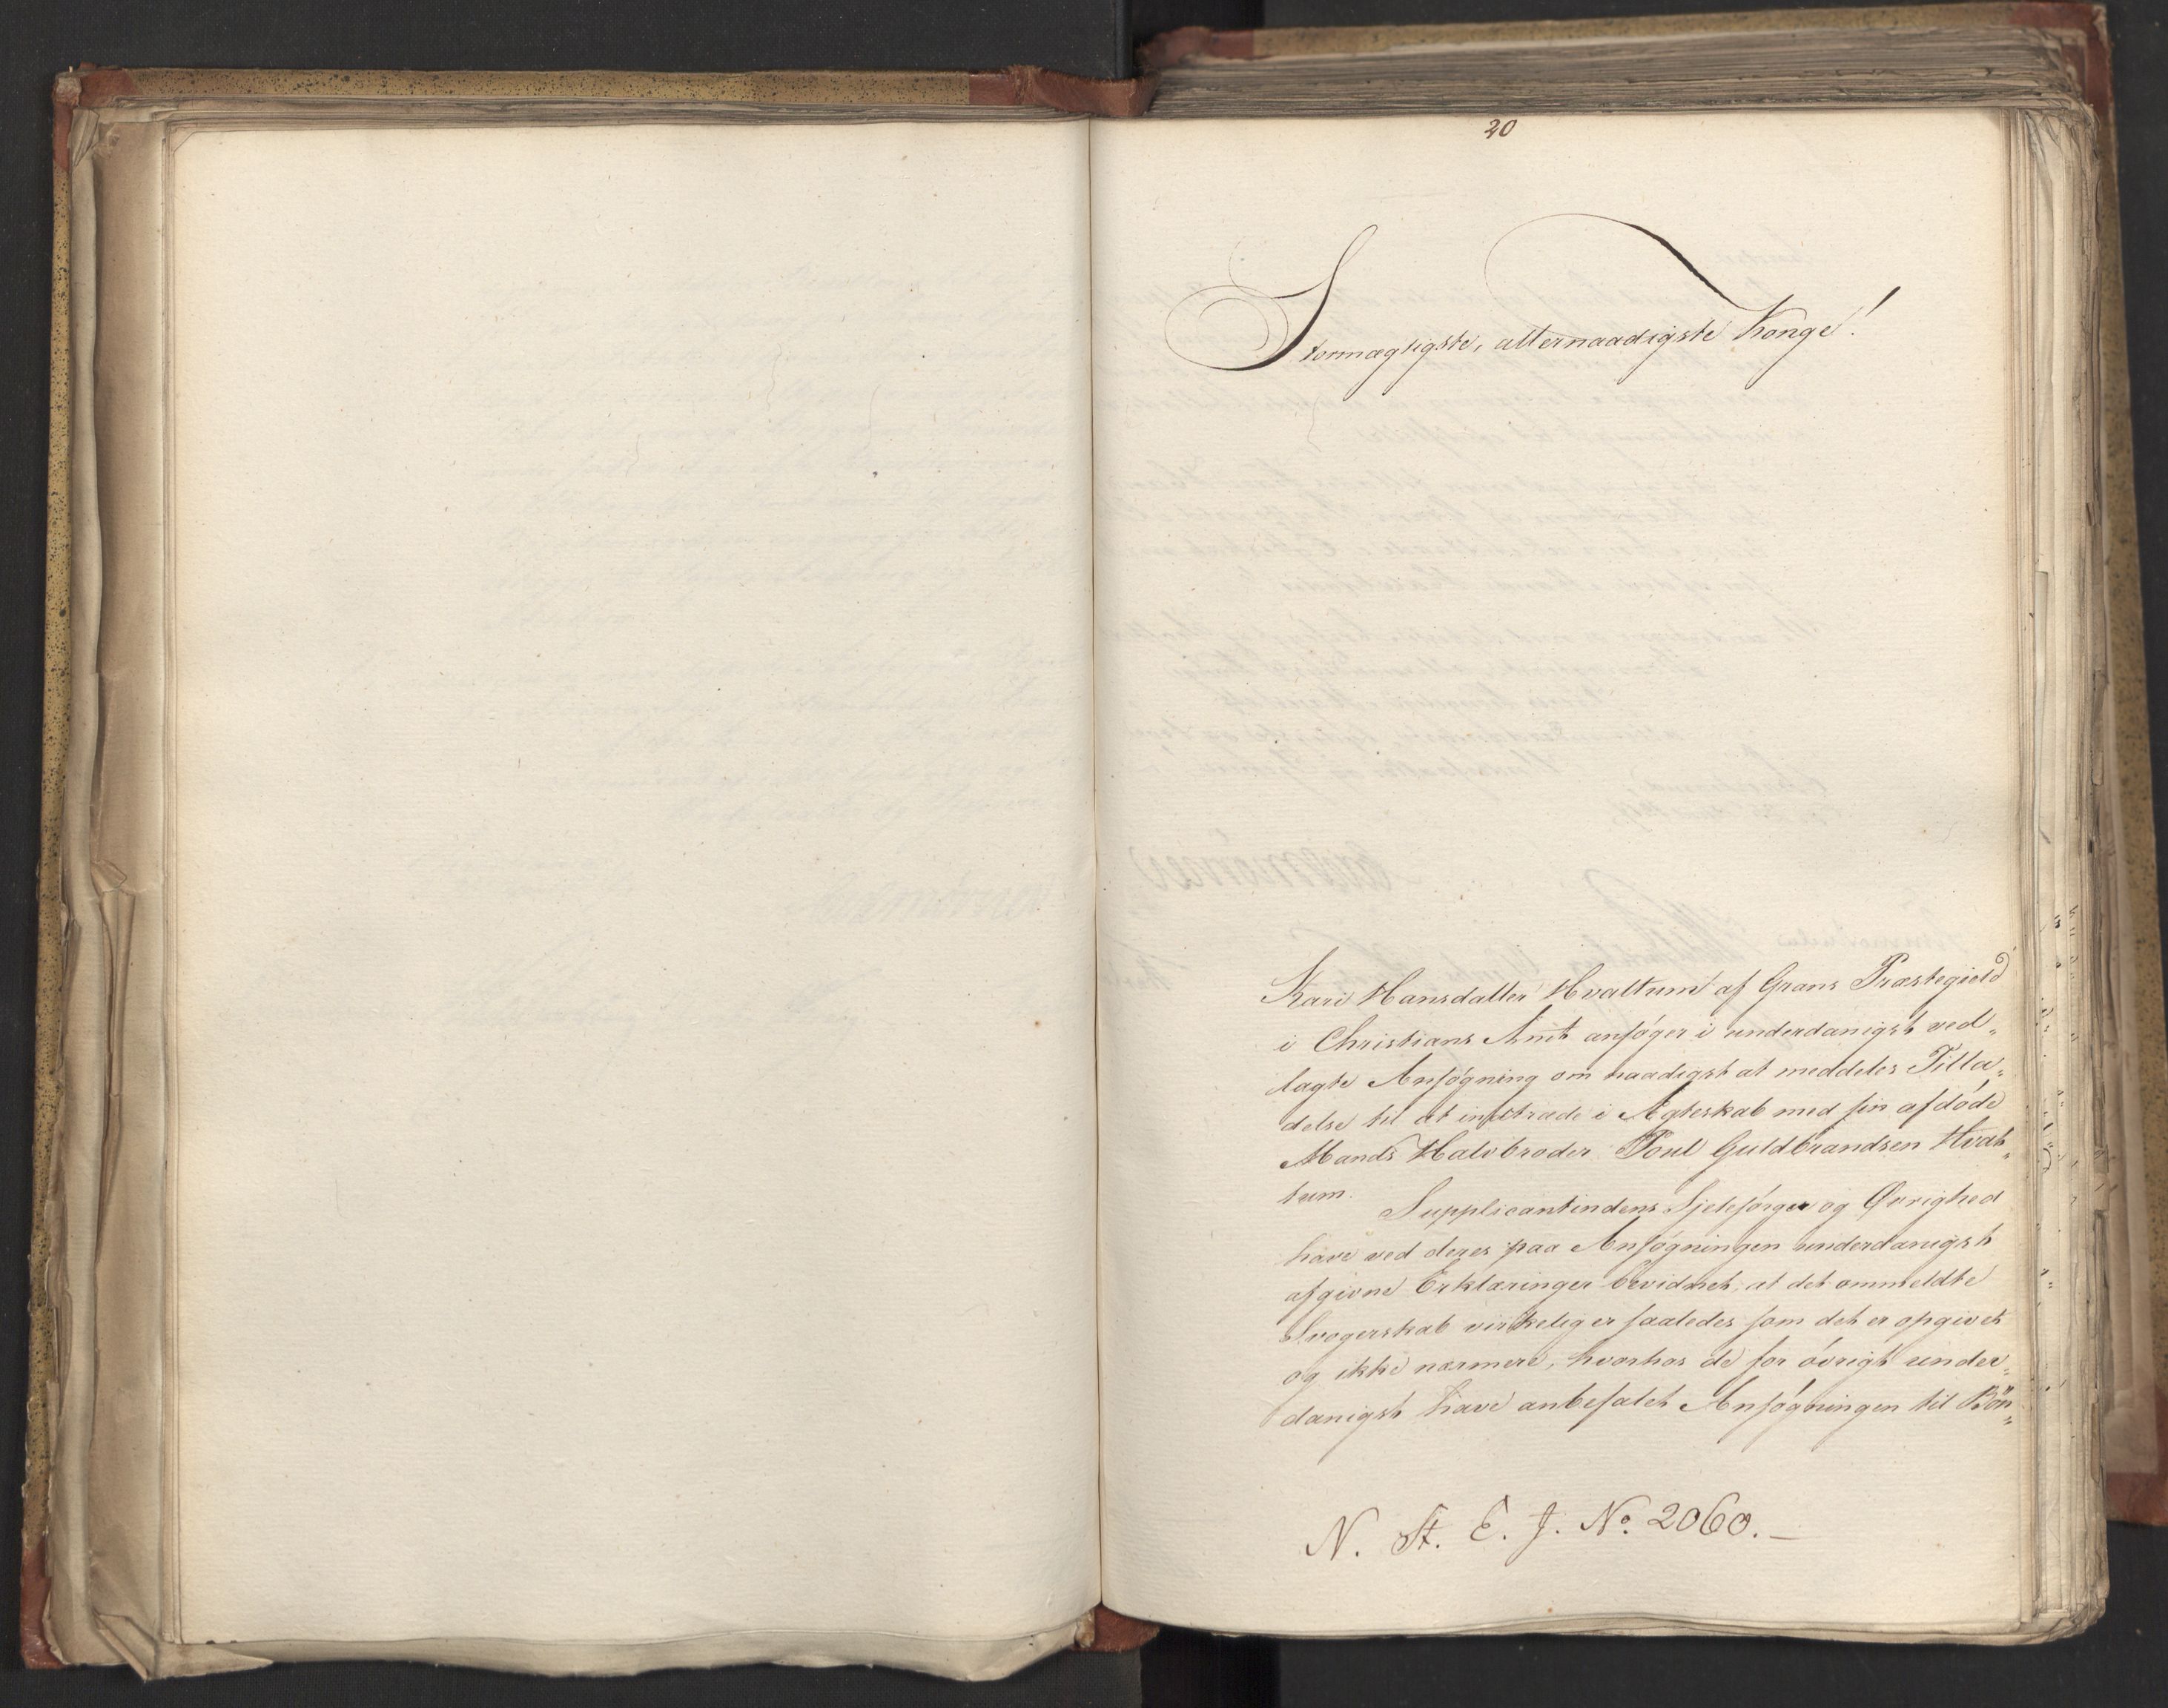 20
Stormægtigste, allernaadigste Konge!
Kari Hansdatter Hvattum af Grans Præstegield
i Christians Amt ansøger i underdanigst ved„
lagte Ansøgning om naadigst at meddeles Tilla„
delse til at indtræde i Ægteskab med sin afdøde
Mands Halvbroder Poul Guldbrandsen Hvat„
tum.
Supplicantindens Sjelesørger og Øvrighed
have ved deres paa Ansøgningen underdanigst
afgivne Erklæringer bevidnet, at det ommeldte
Svogerskab virkelig er saaledes som det er opgivet
og ikke nærmere, hvorhos de for øvrigt under„
danigst have anbefalet Ansøgningen til Bøn„
N. St. E. J. No. 2060.